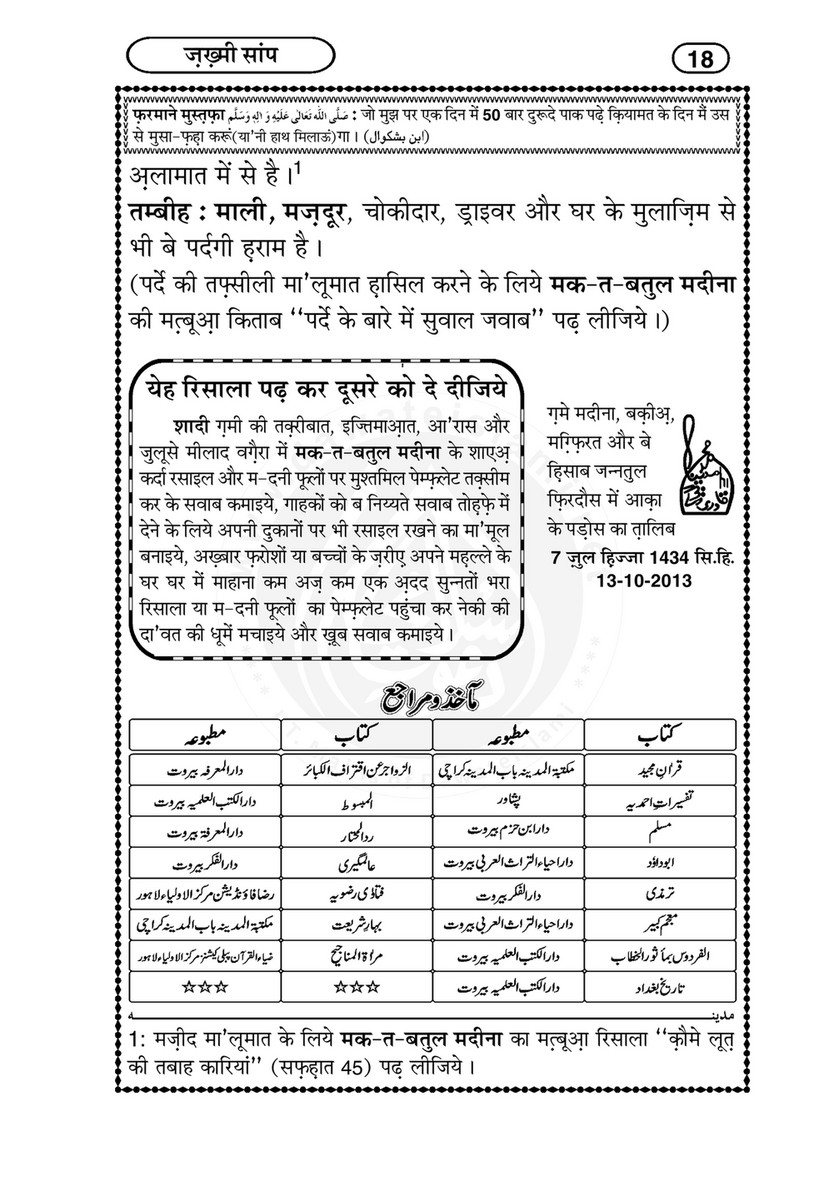 ज़ख़्मी सांप
18
फ़रमाने मुस्त़फ़ा صَلَّى اللّٰهُ تَعَالٰى عَلَيْهِ وَاٰلِهٖ وَسَلَّم : जो मुझ पर एक दिन में 50 बार दुरूदे पाक पढ़े क़ियामत के दिन मैं उस
से मुसा-फ़ह़ा करूं(या'नी हाथ मिलाऊं)गा। (ابن بشکوال)
अ़लामात में से है।1
तम्बीह : माली, मज़दूर, चोकीदार, ड्राइवर और घर के मुलाज़िम से
भी बे पर्दगी ह़राम है।
(पर्दे की तफ़्सीली मा'लूमात ह़ासिल करने के लिये मक-त-बतुल मदीना
की मत़्बूआ़ किताब ‘‘पर्दे के बारे में सुवाल जवाब’’ पढ़ लीजिये।)
येह रिसाला पढ़ कर दूसरे को दे दीजिये
शादी ग़मी की तक़्रीबात, इज्तिमाआ़त, आ'रास और
जुलूसे मीलाद वग़ैरा में मक-त-बतुल मदीना के शाएअ़
कर्दा रसाइल और म-दनी फूलों पर मुश्तमिल पेम्फ़्लेट तक़्सीम
कर के सवाब कमाइये, गाहकों को ब निय्यते सवाब तोह़फ़े में
देने के लिये अपनी दुकानों पर भी रसाइल रखने का मा'मूल
बनाइये, अख़्बार फ़रोशों या बच्चों के ज़रीए अपने मह़ल्ले के
घर घर में माहाना कम अज़ कम एक अ़दद सुन्नतों भरा
रिसाला या म-दनी फूलों का पेम्फ़्लेट पहुंचा कर नेकी की
दा'वत की धूमें मचाइये और ख़ूब सवाब कमाइये।
ग़मे मदीना, बक़ीअ़,
मग़्फ़िरत और बे
हि़साब जन्नतुल
फ़िरदौस में आक़ा
के पड़ोस का त़ालिब
7 ज़ुल हि़ज्जा 1434 सि.हि.
13-10-2013
مآخذ و مراجع
کتاب مطبوعہ کتاب مطبوعہ
قرآنِ مجید مکتبۃ المدینہ باب المدینہ کراچی الزواجر عن اقتراف الکبائر دار المعرفہ بیروت
تفسیراتِ احمدیہ پشاور المبسوط دار الکتب العلمیہ بیروت
مسلم دار ابن حزم بیروت رد المحتار دار المعرفۃ بیروت
ابوداؤد دار احیاء التراث العربی بیروت عالمگیری دار الفکر بیروت
ترمذی دار الفکر بیروت فتاوٰی رضویہ رضا فاؤنڈیشن مرکز الاولیاء لاہور
معجم کبیر دار احیاء التراث العربی بیروت بہارِ شریعت مکتبۃ المدینہ باب المدینہ کراچی
الفردوس بمأثور الخطاب دار الکتب العلمیہ بیروت مراٰۃ المناجیح ضیاء القرآن پبلی کیشنز مرکز الاولیاء لاہور
تاریخ بغداد دار الکتب العلمیہ بیروت ☆☆☆ ☆☆☆
مدینہ
1: मज़ीद मा'लूमात के लिये मक-त-बतुल मदीना का मत़्बूआ़ रिसाला ‘‘क़ौमे लूत़
की तबाह कारियां’’ (सफ़ह़ात 45) पढ़ लीजिये।